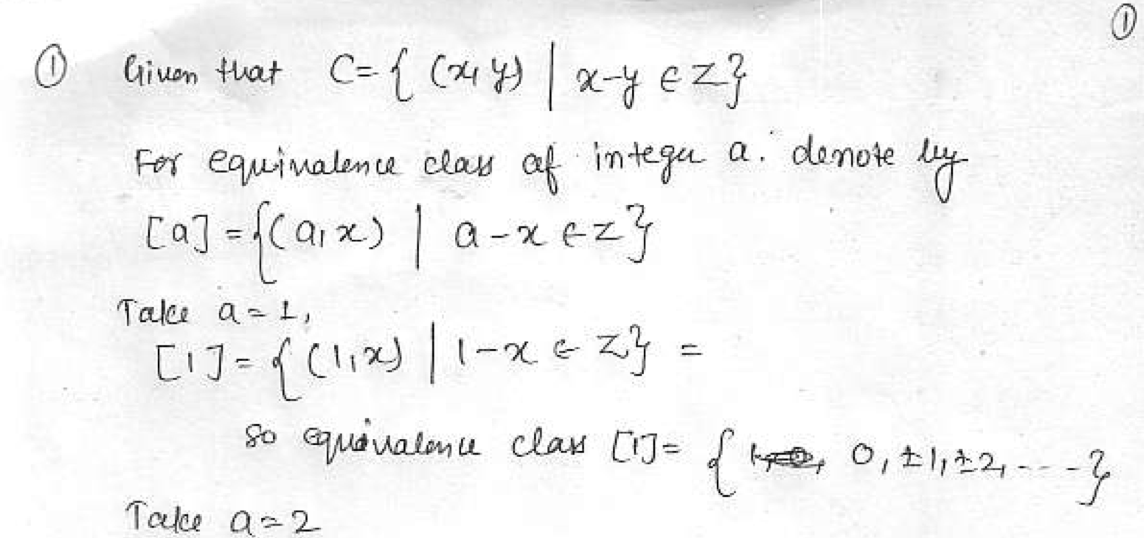 ①
① Given that C= { (x, y) | x-y ∈ Z}
For equivalence class of integer a. denote by
[a] = {(a, x) | a-x ∈ Z}
Take a=1,
[1] = { (1, x) | 1-x ∈ Z} =
So equivalence class [1]= { 0, ±1, ±2, ---}
Take a=2